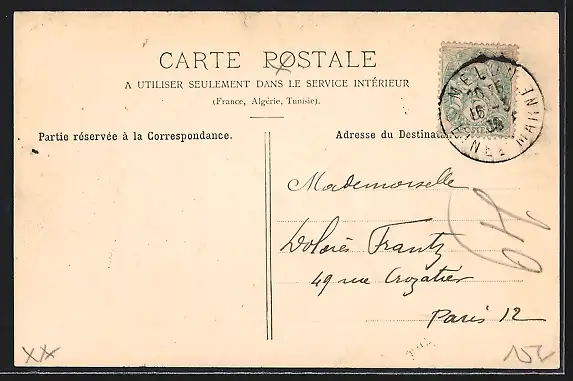 CARTE POSTALE
A UTILISER SEULEMENT DANS LE SERVICE INTÉRIEUR
(France, Algérie, Tunisie).
Partie réservée à la Correspondance.
Adresse du Destinata
MELUN
16
08
Mademoiselle
Dolorès Frantz
49 rue Crozatier
Paris 12
64
XX
152